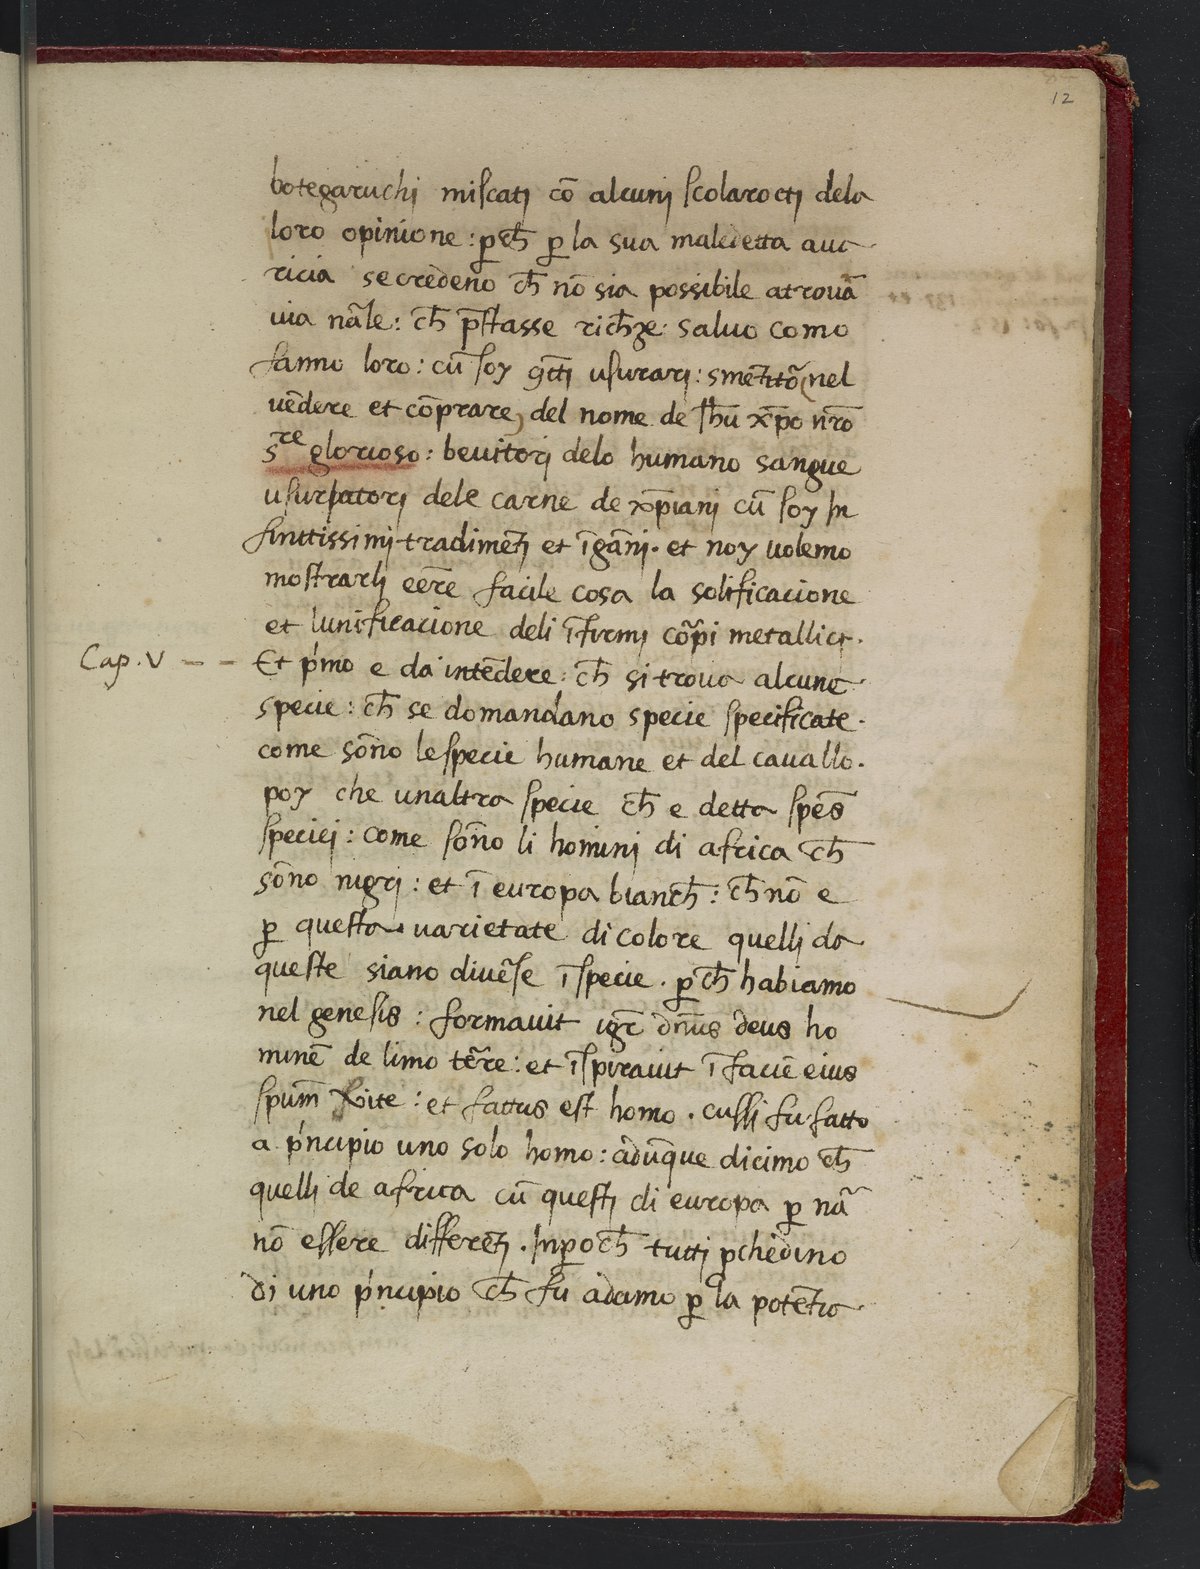 12
botegaruchj miscatj cō alcunj scolaroctj dela
loro opinione : ꝑch̄ ꝑ la sua maledetta aua
ricia se credeno ch̄ nō sia possibile atrouā
uia nāle : ch̄ p̄stasse rich̄ze : saluo como
fanno loro : cū soy usurarj : nel
uēdere et cōprare, del nome de Jh̄u xp̄o nr̄o
s.re glorioso : beuitorj delo humano sangue
usurpatorj dele carne de xp̄ianj cū soy In
finitissimj tradimētj et īgānj . et noy uolemo
mostrarlj eēre facile cosa la solificacione
et lunificacione deli īfirmj cōrpi metallici .
Cap. V - - Et p'mo e da intēdere : ch̄ si troua alcune
specie : ch̄ se domandano specie specificate .
come sōno le specie humane et del cauallo .
poy che unaltra specie ch̄ e detta spēs
speciej : come sōno li hominj di africa ch̄
sōno nigrj : et ī europa bianch̄ : ch̄ nō e
ꝑ questa uarietate di colore quellj da
queste siano diuēse ī specie . ꝑch̄ habiamo
nel genesis : formauit igr̄ dn̄us deus ho
minē de limo tēre : et īspirauit ī faciē eius
spum̄ uite : et fattus est homo . cussi fu fatto
a p'ncipio uno solo homo : adūque dicimo ch̄
quellj de africa cū questj di europa ꝑ nā
nō essere differētj . Inꝑoch̄ tuttj ꝓchiedino
di uno p'ncipio ch̄ fu adamo ꝑ la potētia